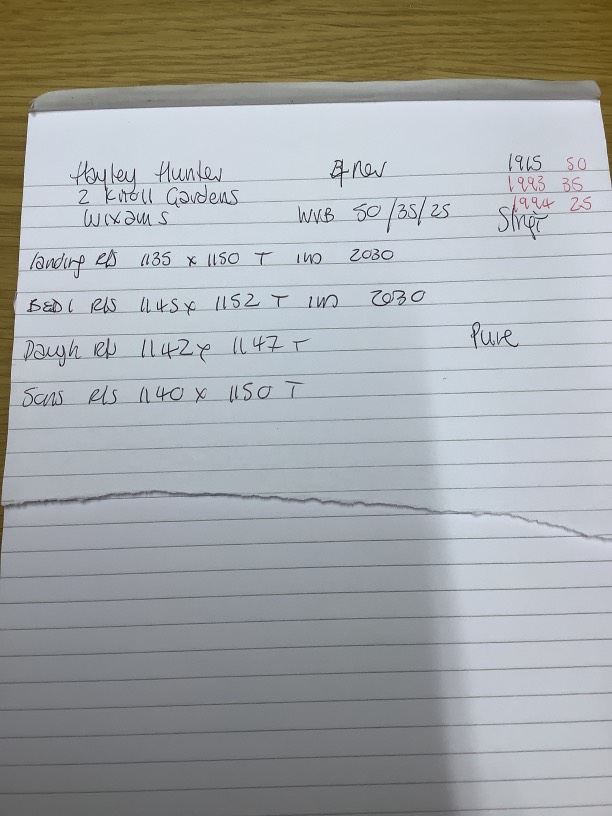 Hayley Hunter
2 Knoll Gardens
Wixams
WVB 50/35/25
1915 50
1993 35
1994 25
landing R/S 1135 x 1150 T IND 2030
BED 1 R/S 1145 x 1152 T IND 2030
Daugh R/S 1142 x 1147 T
Pure
Sons R/S 1140 x 1150 T